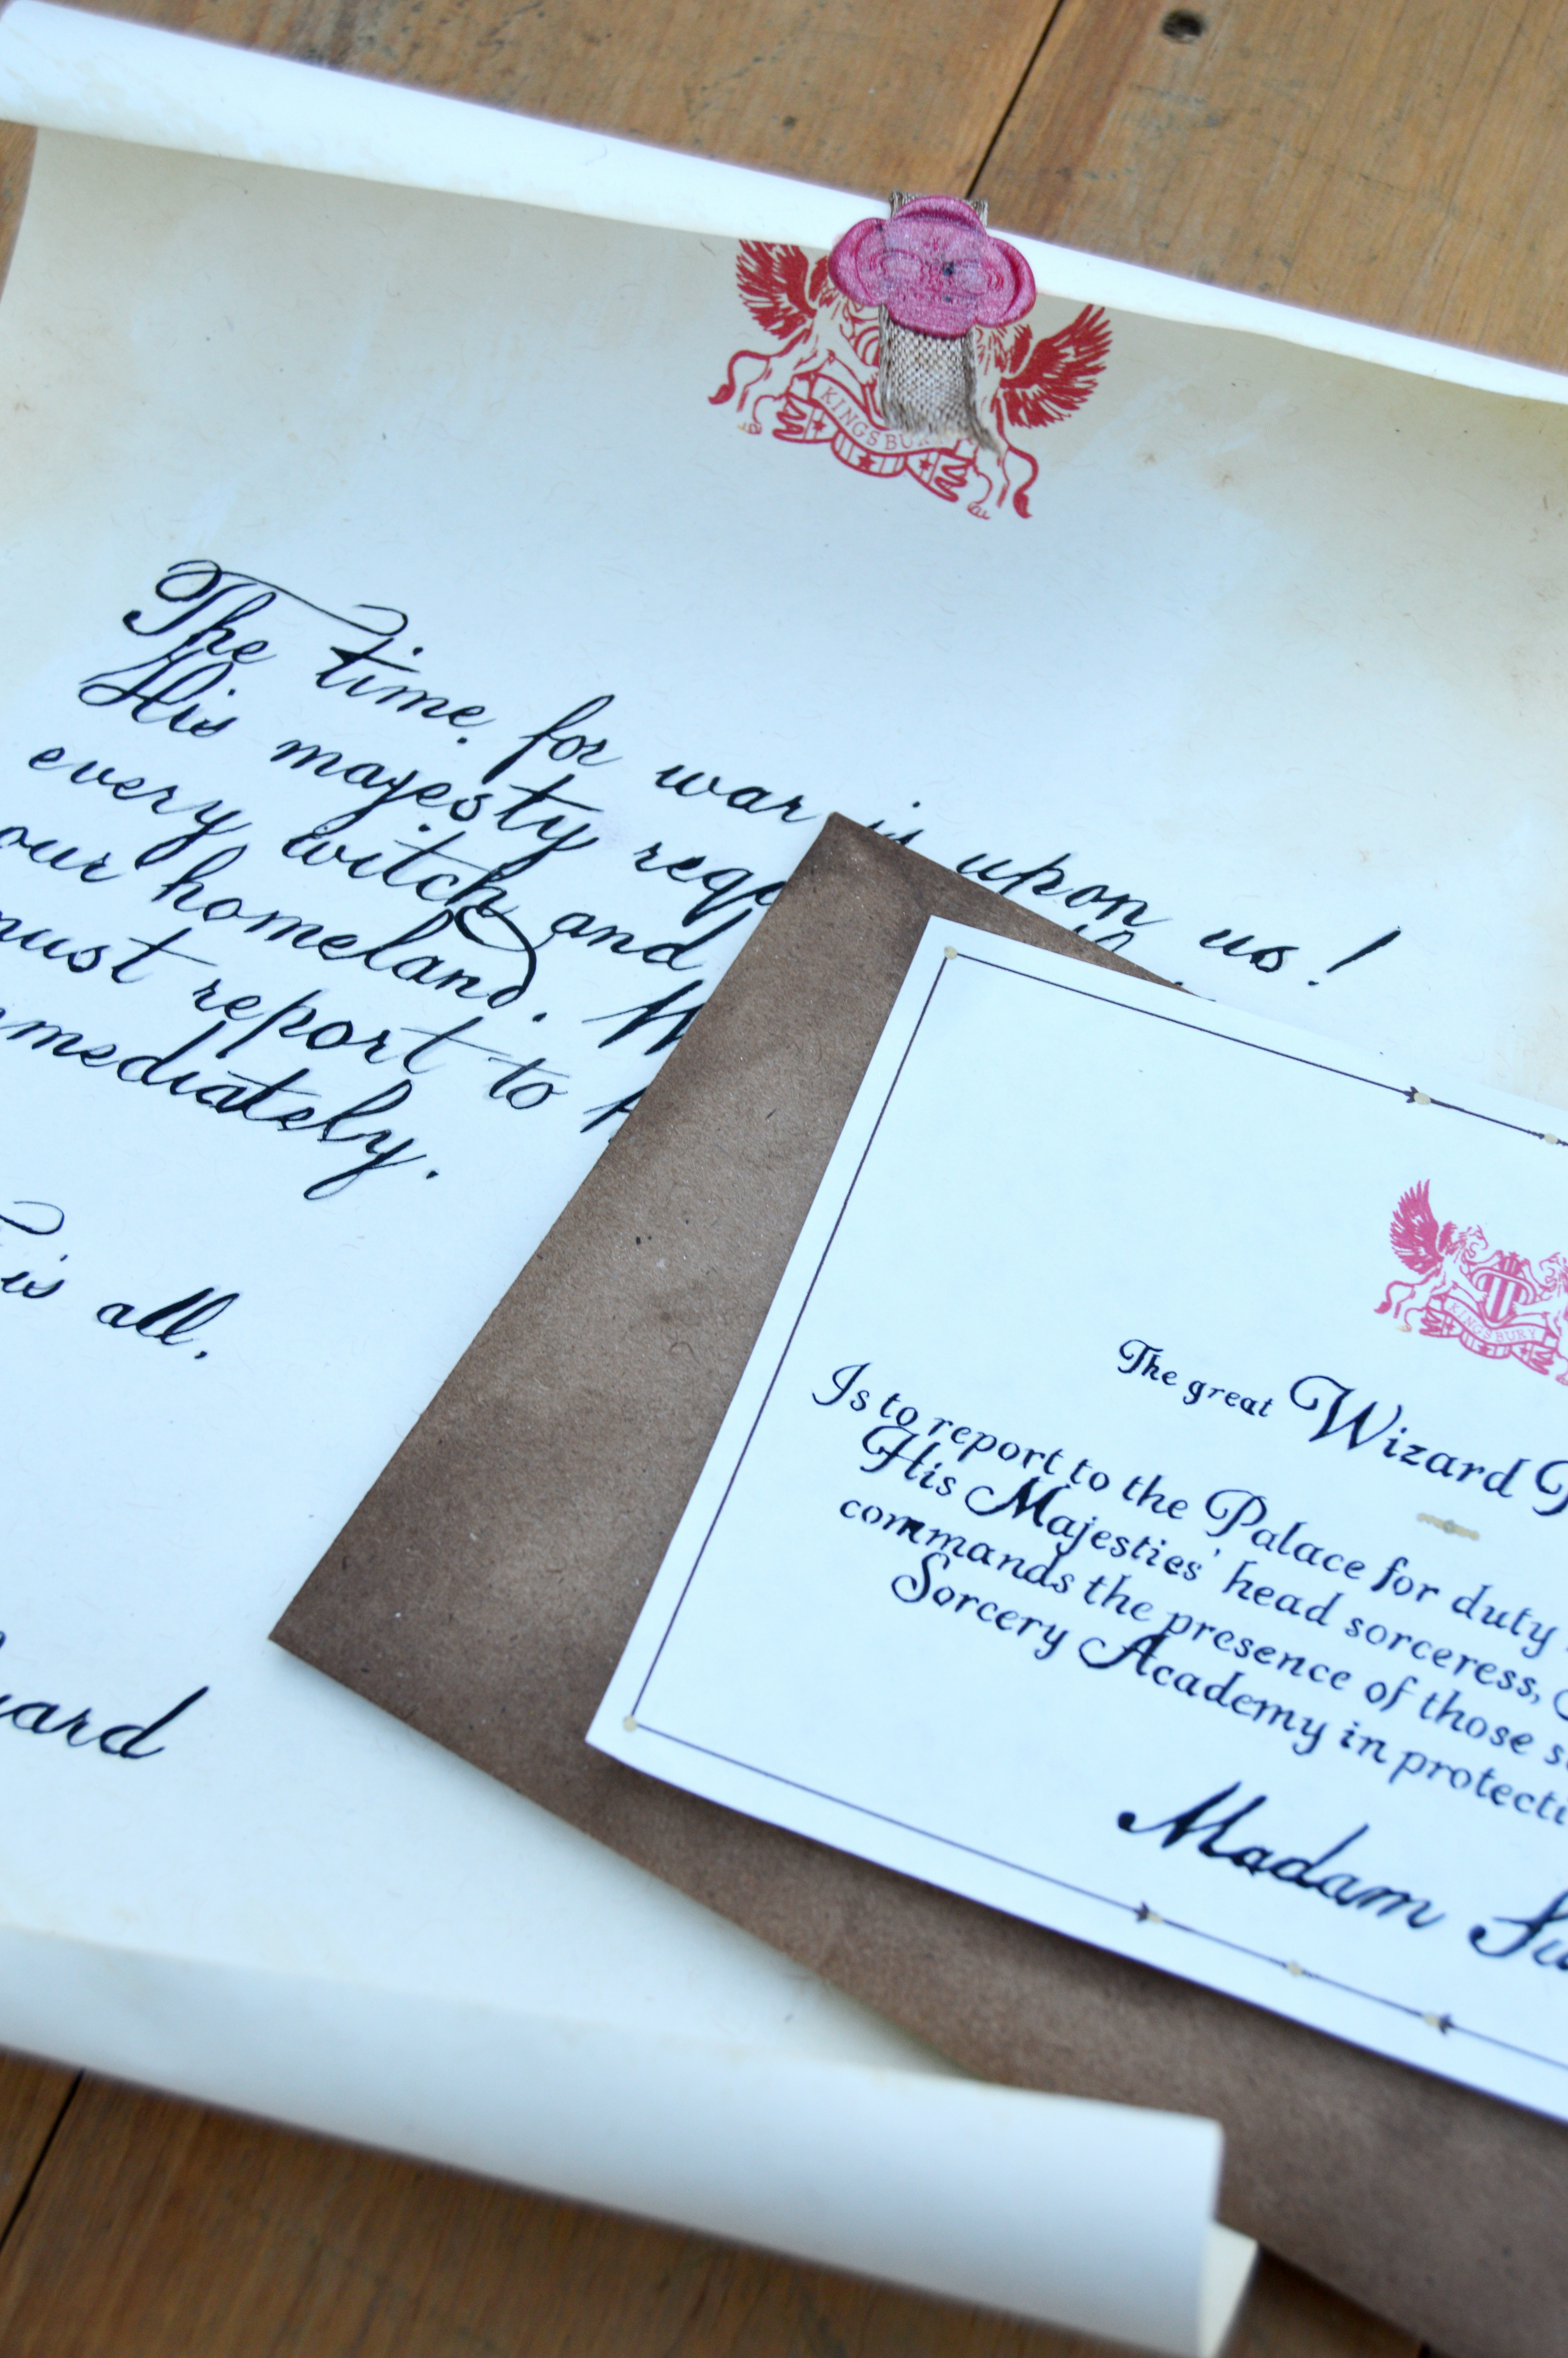 KINGSBU
The time for war is upon us!
His majesty
every witch and
our homeland.
must report to
mmediately.
is all.
KINGSBURY
The great Wizard
Is to report to the Palace for duty
His Majesties' head sorceress,
commands the presence of those
Sorcery Academy in protecti
Madam